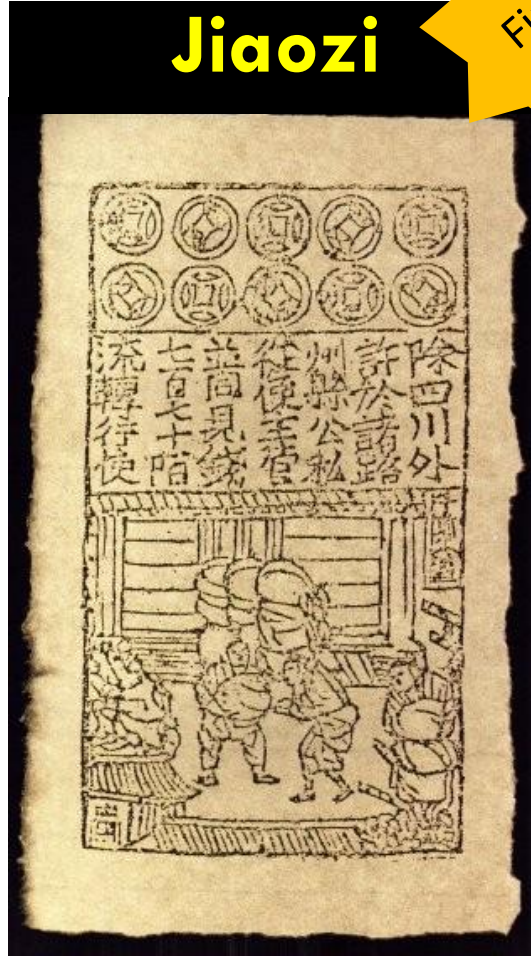 Jiaozi
Fi
除四川外
許於諸路
州縣公私
從便主管
並同見錢
七百七十陌
流轉行使